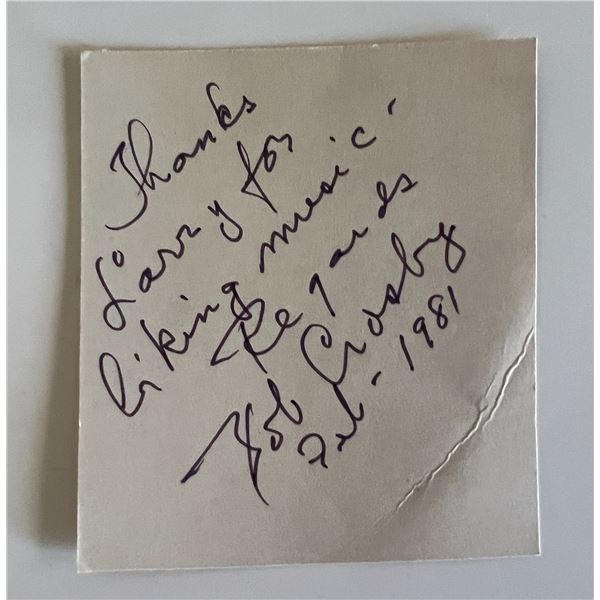 Thanks
Larry for
liking music.
Regards
Bob Crosby
Feb - 1981